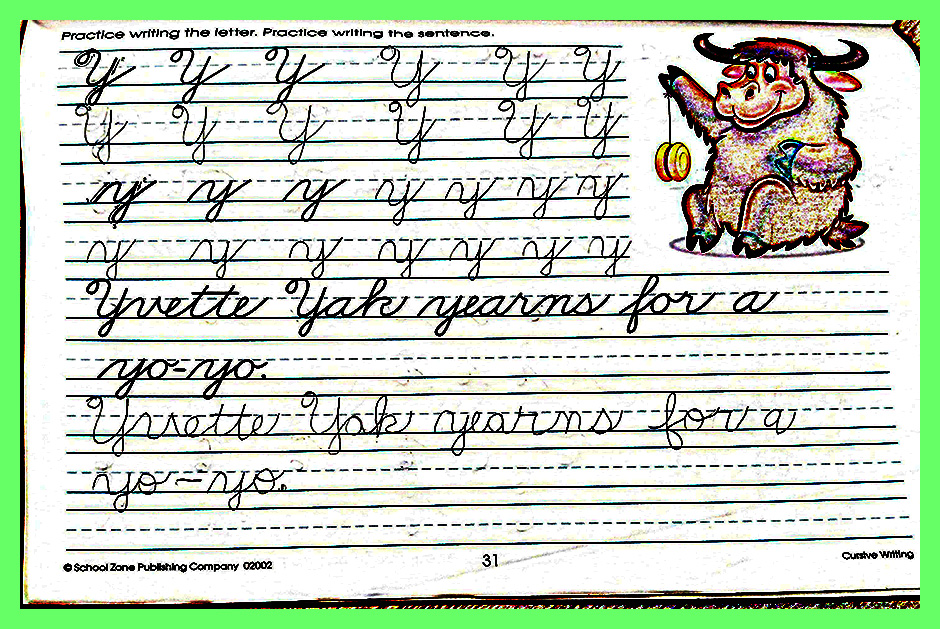 Practice writing the letter. Practice writing the sentence.
Y Y Y Y Y Y
Y Y Y Y Y Y
y y y y y y y
y y y y y y y
Yvette Yak yearns for a
yo-yo.
Yvette Yak yearns for a
yo-yo.
© School Zone Publishing Company 02002
31
Cursive Writing